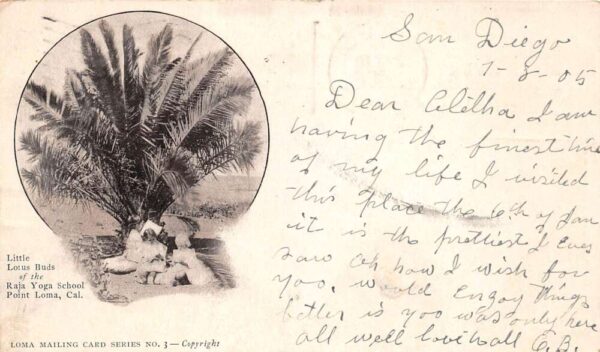 San Diego
1-8-05
Dear Aletha I am
having the finest time
of my life I visited
this place the 6th of Jan
it is the prettiest I ever
saw oh how I wish for
you, would Enjoy things
better is you was only here
all well love to all E.B.
Little
Lotus Buds
of the
Raja Yoga School
Point Loma, Cal.
LOMA MAILING CARD SERIES NO. 3 — Copyright